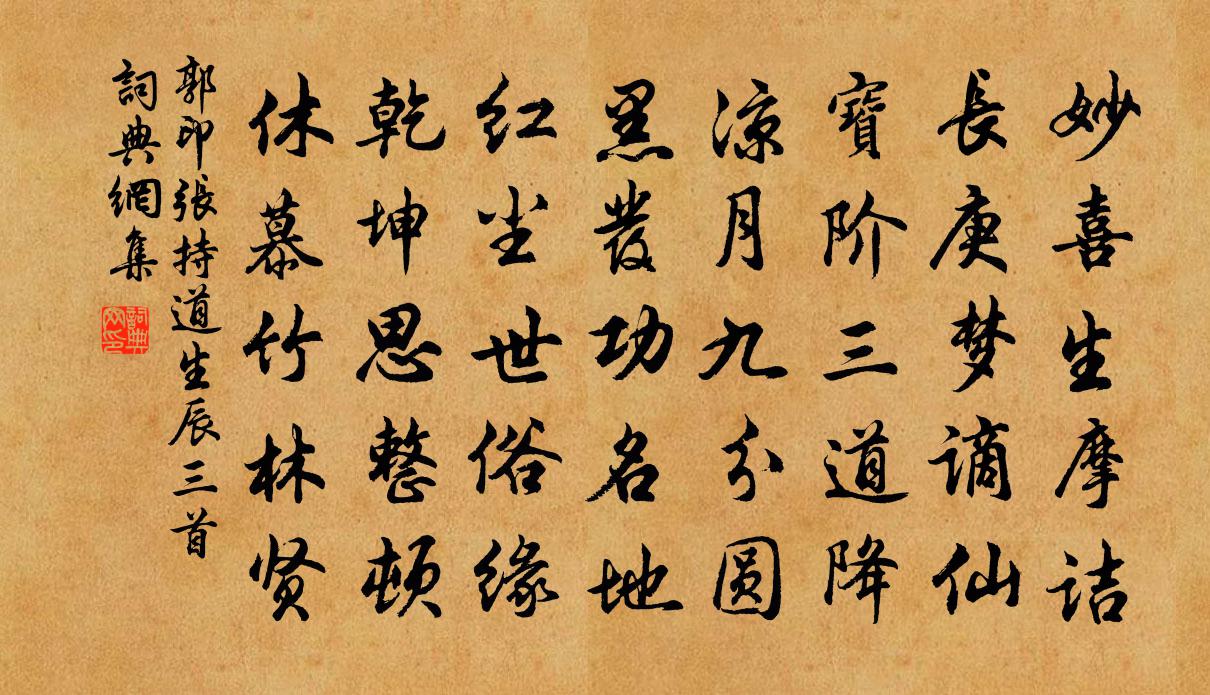 妙喜生摩诘
長庚梦谪仙
寶阶三道降
凉月九分圆
黑發功名地
红尘世俗缘
乾坤思整顿
休慕竹林贤
郭印張持道生辰三首
詞典網集
詞典网印